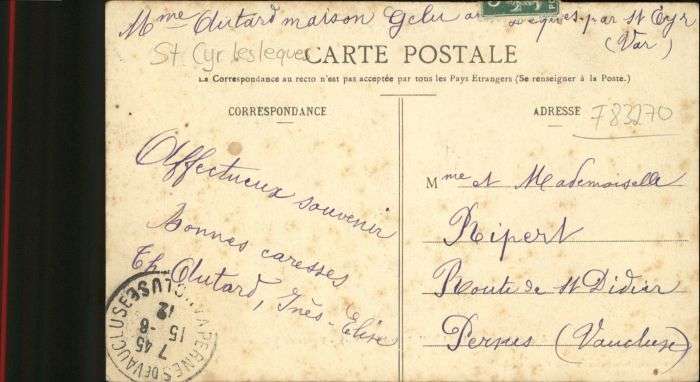 Mme Autard maison Gelu aux Lèques par St Cyr
(Var)
St. Cyr les leques
CARTE POSTALE
La Correspondance au recto n'est pas acceptée par tous les Pays Etrangers (Se renseigner à la Poste.)
CORRESPONDANCE
Affectueux souvenir
Bonnes caresses
Th. Autard, Inès-Elise
ADRESSE
F83270
Mme et Mademoiselle
Ripert
Route de St Didier
Pernes (Vaucluse)
PERNES
VAUCLUSE
7 45
15 - 8
12